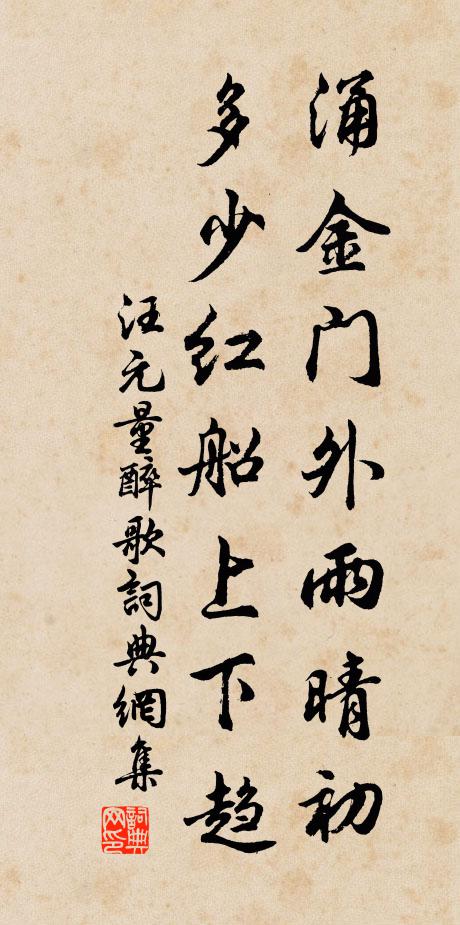 涌金門外雨晴初
多少红船上下趋
汪元量醉歌詞典網集
詞典网印